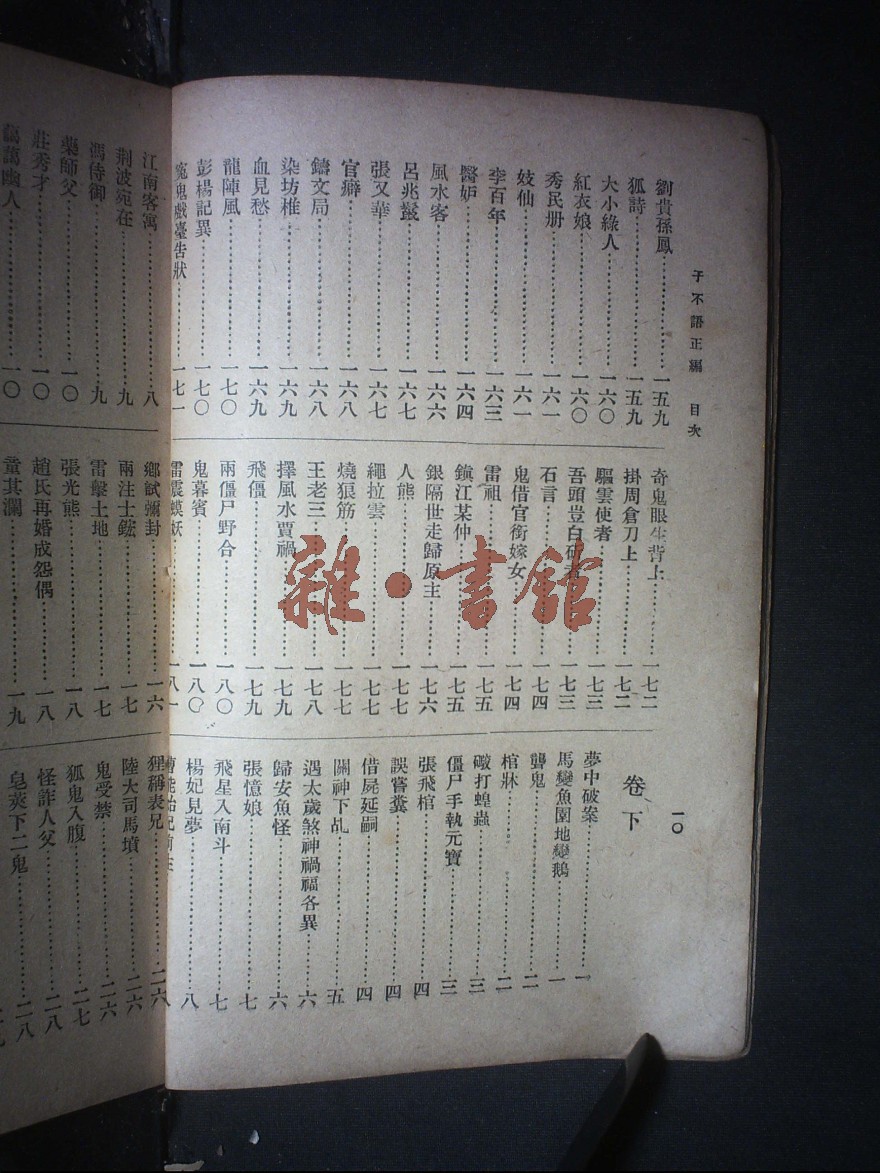 子不語正編 目次
一〇
劉貴孫鳳……一五九
狐詩……一五九
大小綠人……一六〇
紅衣娘……一六〇
秀民册……一六一
妓仙……一六一
李百年……一六三
醫妒……一六四
風水客……一六六
呂兆鬣……一六七
張又華……一六七
官癖……一六八
鑄文局……一六八
染坊椎……一六九
血見愁……一六九
龍陣風……一七〇
彭楊記異……一七〇
冤鬼戲臺告狀……一七一
奇鬼眼生背上……一七二
掛周倉刀上……一七二
驅雲使者……一七三
吾頭豈白斫者……一七三
石言……一七四
鬼借官銜嫁女……一七四
雷祖……一七五
鎭江某仲……一七五
銀隔世走歸原主……一七六
人熊……一七七
繩拉雲……一七七
燒狼筋……一七七
王老三……一七八
擇風水賈禍……一七九
飛僵……一七九
兩僵尸野合……一八〇
鬼幕賓……一八〇
雷震蟆妖……一八一
卷下
夢中破案……一
馬變魚園地變鵝……一
聾鬼……二
棺牀……二
礮打蝗蟲……三
僵尸手執元寶……三
張飛棺……四
誤嘗糞……四
借屍延嗣……四
關神下乩……五
遇太歲煞神禍福各異……六
歸安魚怪……六
張憶娘……七
飛星入南斗……七
楊妃見夢……八
曹能始記前生
江南客寓……八
荆波宛在……九
馮侍御……九
藥師父……一〇
莊秀才……一〇
幽人……一〇
鄉試彌封……一六
兩汪士鋐……一七
雷擊土地……一七
張光熊……一八
趙氏再婚成怨偶……一八
童其瀾……一九
狸稱表兄……二六
陸大司馬墳……二六
鬼受禁……二六
狐鬼入腹……二七
怪詐人父……二八
皂莢下二鬼……二八
雜·書館